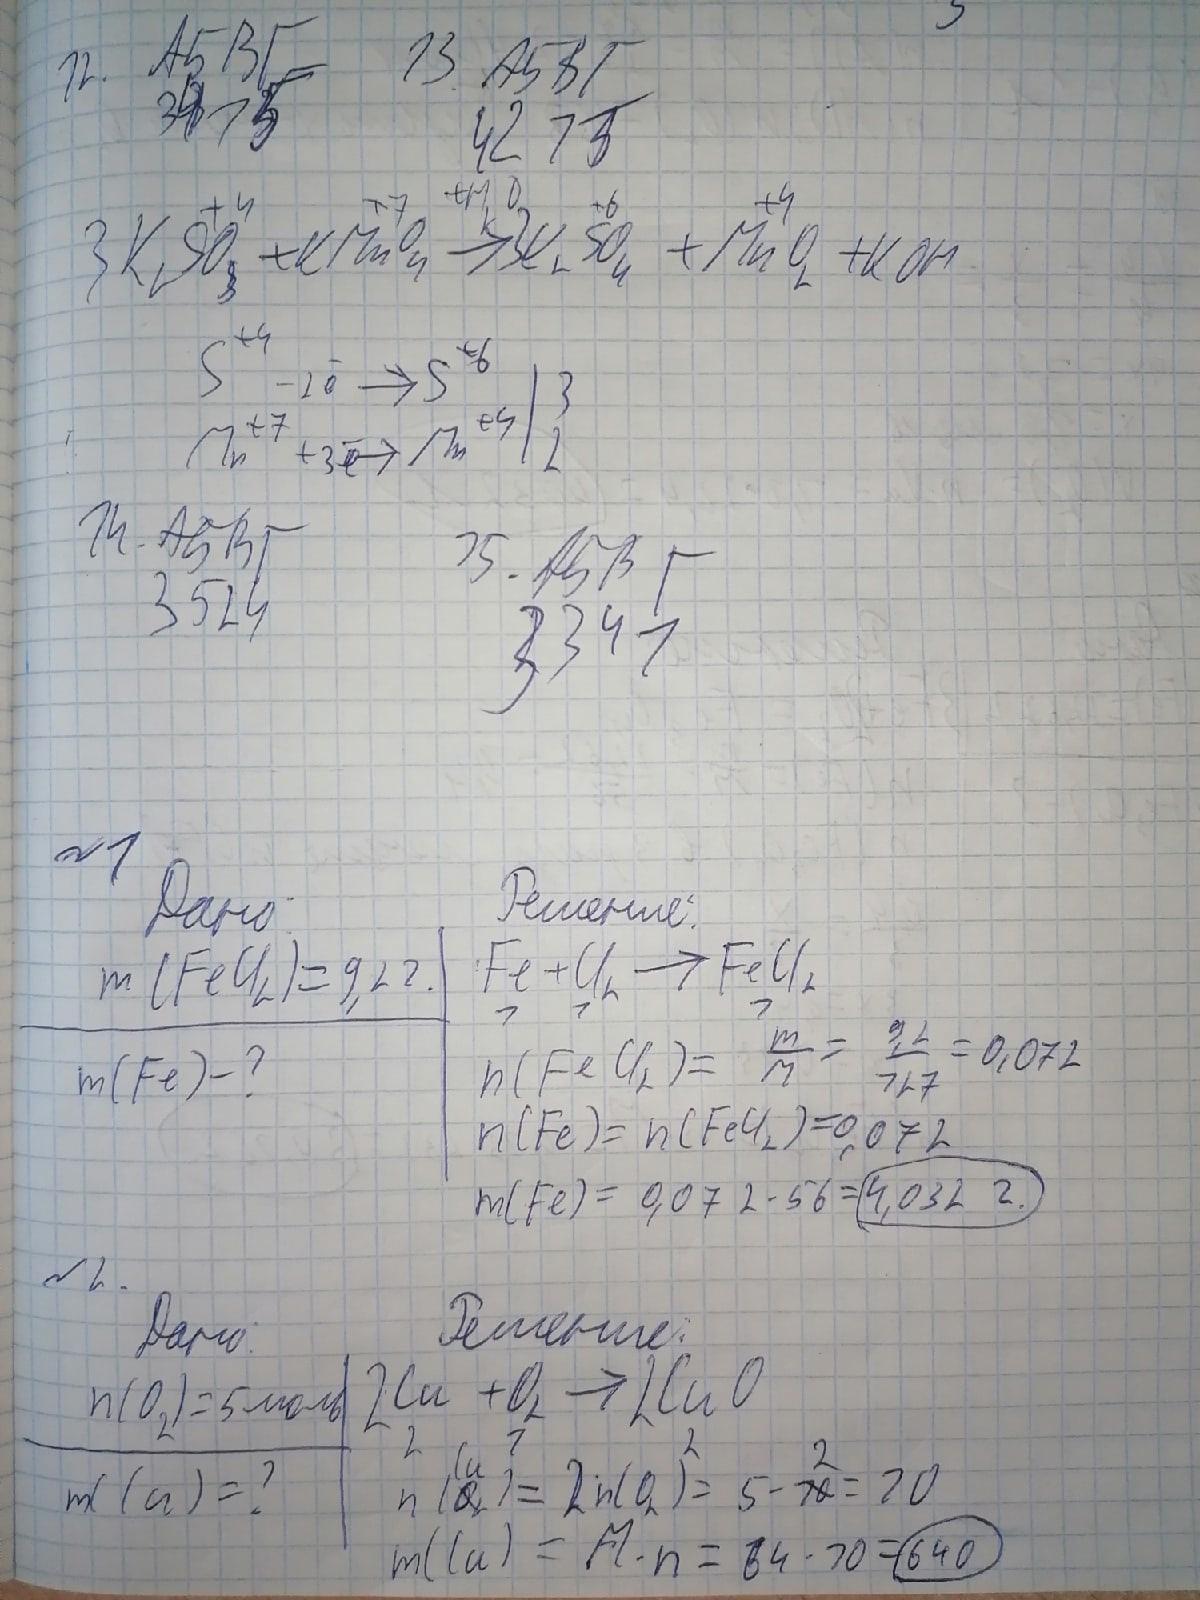 12. АБВГ
13. АБВГ
4215
+4 +7 +H₂O +6 +4
3K₂SO₃ + KMnO₄ → 3K₂SO₄ + MnO₂ + KOH
S⁺⁴ -2ē → S⁺⁶ | 3
Mn⁺⁷ +3ē → Mn⁺⁴ | 2
14. АБВГ
3524
15. АБВГ
3341
№1
Дано:
m(FeCl₂)=9,2г.
m(Fe)-?
Решение:
Fe + Cl₂ → FeCl₂
1 1 1
n(FeCl₂)= m/M = 9,2/127 = 0,072
n(Fe)= n(FeCl₂)=0,072
m(Fe)= 0,072·56=4,032 г.
№2.
Дано:
n(O₂)=5моль
m(Cu)=?
Решение:
2Cu + O₂ → 2CuO
2 1 2
n(Cu)= 2n(O₂)= 5·2=10
m(Cu) = M·n = 64·10=640